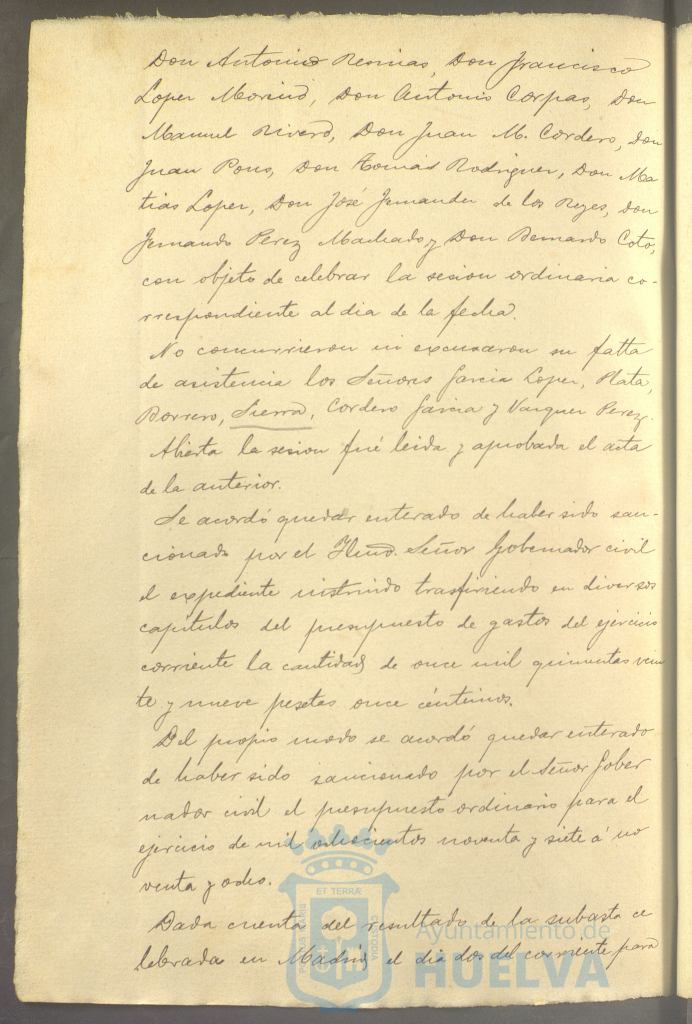 Don Antonio Resinas, Don Francisco
Lopez Moreno, Don Antonio Corpas, Don
Manuel Rivero, Don Juan M. Cordero, Don
Juan Pons, Don Tomás Rodriguez, Don Ma
tias Lopez, Don José Fernandez de los Reyes, Don
Fernando Perez Machado y Don Bernardo Coto,
con objeto de celebrar la sesion ordinaria co-
rrespondiente al dia de la fecha.
No concurrieron ni excusaron su falta
de asistencia los Señores Garcia Lopez, Plata,
Borrero, Sierra, Cordero Garcia y Vazquez Perez.
Abierta la sesion fué leida y aprobada el acta
de la anterior.
Se acordó quedar enterado de haber sido san-
cionado por el Ilmo. Señor Gobernador civil
el expediente instruido trasfiriendo en diversos
capítulos del presupuesto de gastos del ejercicio
corriente la cantidad de once mil quinientas vein
te y nueve pesetas once céntimos.
Del propio modo se acordó quedar enterado
de haber sido sancionado por el Señor Gober
nador civil el presupuesto ordinario para el
ejercicio de mil ochocientos noventa y siete á no
venta y ocho.
Dada cuenta del resultado de la subasta ce
lebrada en Madrid el dia dos del corriente para
ET TERRÆ
PORTUS MARIS
CUSTODIA
Ayuntamiento de
HUELVA